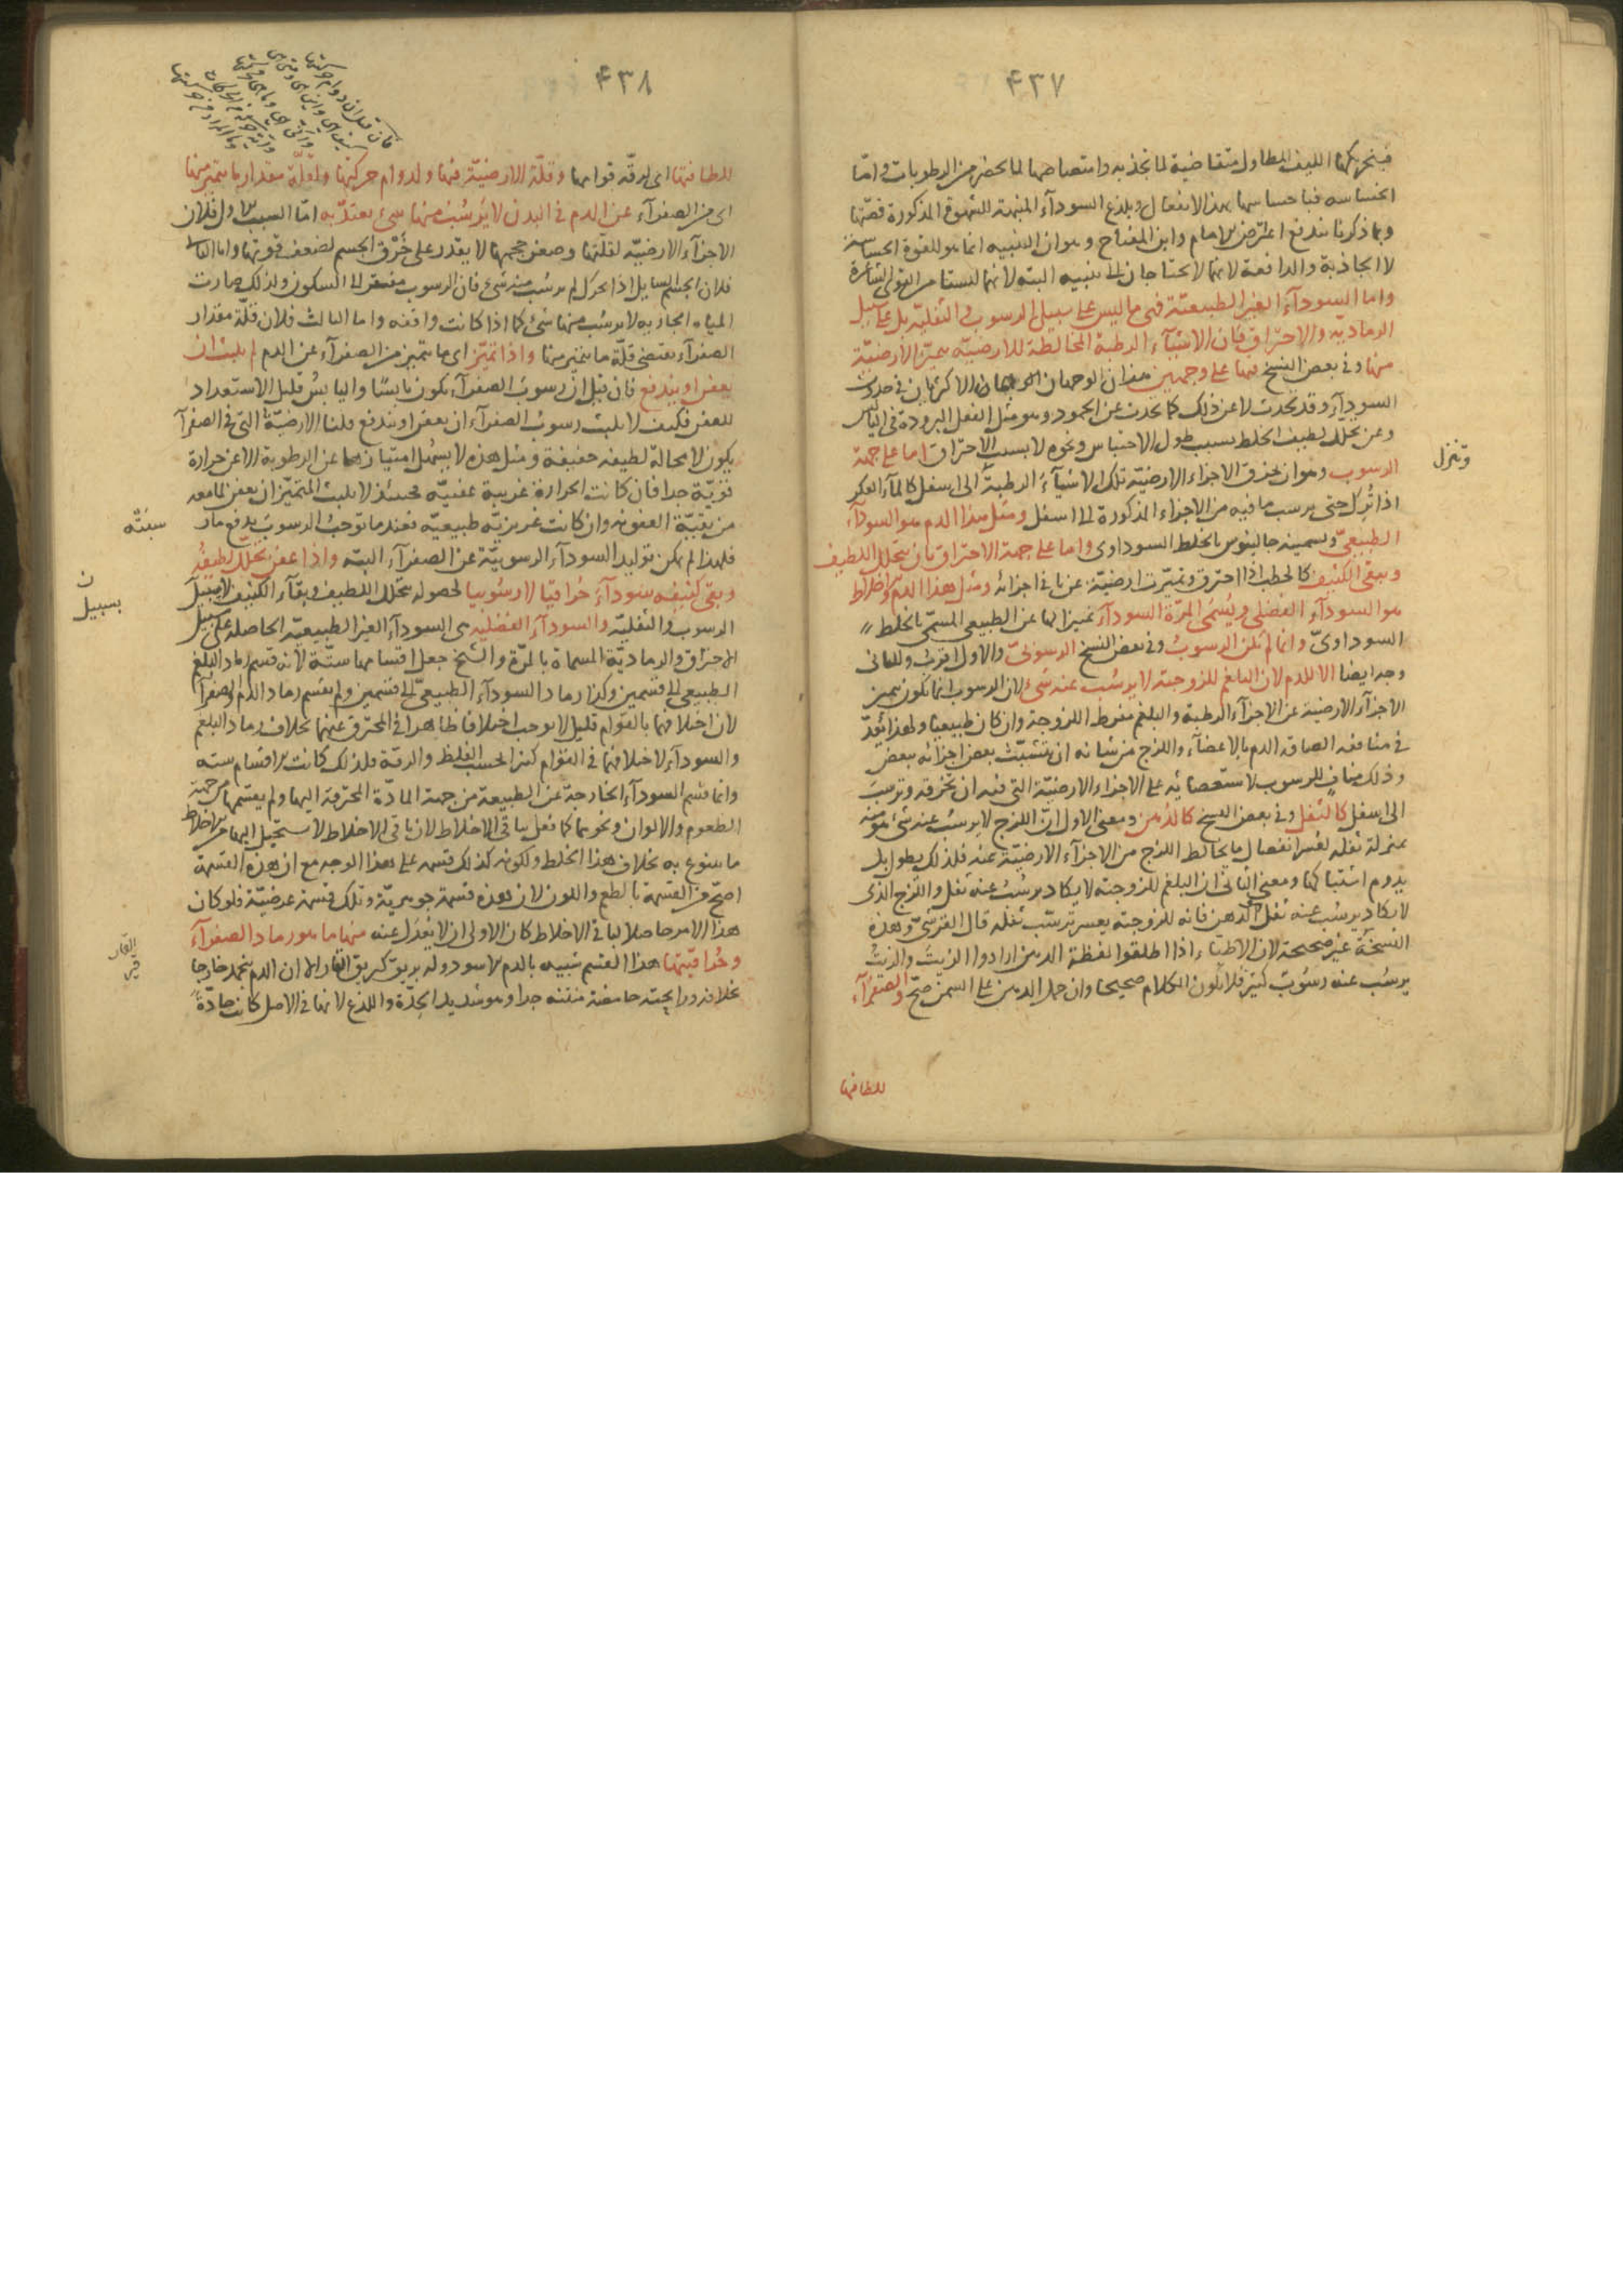 ۴۳۷
فبتحريكها الليف المطاول متقاضية لما تجذبه وامتصاصها لما يحضر من الرطوبات واما
احساسه فباحساسها بهذا الانفعال وبلذع السودآء المنبهة للشهوة المذكورة قصتها
وبما ذكرنا يندفع اعتراض الامام وابن المفتاح وهو ان التنبيه انما هو للقوة الحساسة
لا الجاذبة والدافعة لانهما لا يحتاجان الى تنبيه البتة لانهما ليستا من القوى الشاعرة
واما السودآء الغير الطبيعية فهى ما ليس على سبيل الرسوب والثفلية بل على سبيل
الرمادية والاحتراق فان الاشيآء الرطبة المخالطة للارضية يتميز الارضية
منها وفى بعض النسخ فيها على وجهين هذان الوجهان الاكثريان فى حدوث
السودآء وقد تحدث لا عن ذلك كما يحدث عن الجمود وهو مثل الفعل البرودة فى الياس
وعن تحلل لطيف الخلط بسبب طول الاحتباس ونحوه لا بسبب الاحتراق اما على جهة
الرسوب وهو ان تخرق الاجزاء الارضية تلك الاشيآء الرطبة الى اسفل كالمآء العكر
اذا ترك حتى يرسب ما فيه من الاجزاء المذكورة الى اسفل ومثل هذا الدم هو السودآء
الطبيعى ويسميه جالينوس بالخلط السوداوى واما على جهة الاحتراق بان يتحلل اللطيف
ويبقى الكثيف كالحطب اذا احترق وتميزت ارضيته عن باقى اجزائه ومثل هذا الدم والاخلاط
هو السودآء الفضلى ويسمى المرة السودآء تمييزا لها عن الطبيعى المسمى بالخلط
السوداوى وانما لم يكن الرسوب وفى بعض النسخ الرسوبى والاول اقرب وللثانى
وجه ايضا الا للدم لان البلغم للزوجته لا يرسب عنه شئ لان الرسوب انما يكون بتميز
الاجزآء الارضية عن الاجزآء الرطبة والبلغم مفرط اللزوجة وان كان طبيعيا ولهذا يعد
فى منافعه الصاقه الدم بالاعضآء واللزج من شانه ان يتشبث بعض اجزائه ببعض
وذلك مناف للرسوب لاستعصائه على الاجزاء الارضية التى فيه ان تخرقه وترسب
الى اسفل كالثفل وفى بعض النسخ كالدهن ومعنى الاول ان اللزج لا يرسب عنه شئ هو منه
بمنزلة ثفله لعسر انفصال ما يخالط اللزج من الاجزآء الارضية عنه فلذلك يطول بل
يدوم اشتباكها ومعنى الثانى ان البلغم للزوجته لا يكاد يرسب عنه ثفل واللزج الذى
لا يكاد يرسب عنه ثفل الدهن فانه للزوجته يعسر ترسب ثفله قال القرشى وهذه
النسخة غير صحيحة لان الاطباء اذا اطلقوا لفظة الدهن ارادوا الزيت والزيت
يرسب عنه رسوب كثير فلا يكون الكلام صحيحا وان حمل الدهن على السمن صح والصفرآء
وتنزل
للطافتها
۴۳۸
للطافتها اى لرقة قوامها وقلة الارضية فيها ولدوام حركتها ولقلة مقدار ما يتميز منها
اى من الصفرآء عن الدم فى البدن لا يرسب منها شئ يعتد به اما السبب الاول فلان
الاجزآء الارضية لقلتها وصغر حجمها لا يقدر على خرق الجسم لضعف قوتها واما الثانى
فلان الجسم السايل اذا تحرك لم يرسب منه شئ فان الرسوب مفتقر الى السكون ولذلك صارت
المياه الجارية لا يرسب منها شئ كما اذا كانت واقفه واما الثالث فلان قلة مقدار
الصفرآء يقتضى قلة ما يتميز منها واذا تميز اى ما يتميز من الصفرآء عن الدم لم يلبث ان
يعفن او يندفع فان قيل ان رسوب الصفرآء يكون يابسا واليابس قليل الاستعداد
للعفن فكيف لا يلبث رسوب الصفرآء ان يعفن او يندفع قلنا الارضية التى فى الصفرآء
يكون لا محالة لطيفه خفيفة ومثل هذه لا يسهل امتيازها عن الرطوبة الا عن حرارة
قوية جدا فان كانت الحرارة غريبة عفنيه فحينئذ لا يلبث المتميز ان يعفن لما معه
من بقية العفونه وان كانت غريزية طبيعية فعندما توجب الرسوب يدفع ما
فلهذا لم يكن توليد السودآء الرسوبية عن الصفرآء البته واذا عفن تحلل لطيفه
وبقى كثيفه سودآء حراقيا لا رسوبيا لحصوله بتحلل اللطيف وبقآء الكثيف لا بسبيل
الرسوب والثفلية والسودآء الفضليه هى السودآء الغير الطبيعية الحاصلة على سبيل
الاحتراق والرمادية المسماة بالمرة والشيخ جعل اقسامها ستة لانه قسم رماد البلغم
الطبيعى الى قسمين وكذا رماد السودآء الطبيعى الى قسمين ولم يقسم رماد الدم والصفرآء
لان اختلافهما بالقوام قليل لا يوجب اختلافا ظاهرا فى المحترق عنهما بخلاف رماد البلغم
والسودآء لاختلافهما فى القوام كثيرا بحسب الغلظ والرقة فلذلك كانت الاقسام سته
وانما قسم السودآء الخارجة عن الطبيعة من جهة المادة المحترقة اليها ولم يقسمها من جهة
الطعوم والالوان ونحوهما كما فعل بباقى الاخلاط لان باقى الاخلاط لا يستحيل اليها من الاخلاط
ما يتنوع به بخلاف هذا الخلط ولكونه كذلك قسمه على هذا الوجه مع ان هذه القسمة
اصح من القسمة بالطعم واللون لان هذه قسمة جوهرية وتلك قسمة عرضية فلو كان
هذا الامر حاصلا لباقى الاخلاط كان الاولى ان لا يعدل عنه منها ما هو رماد الصفرآء
وحراقتها هذا القسم شبيه بالدم الاسود وله بريق كبريق القار الا ان الدم يجمد خارجا
بخلافه ورايحته حامضة منتنه جدا وهو شديد الحدة واللذع لانها فى الاصل كانت حادة
بسبيل
القار
قير